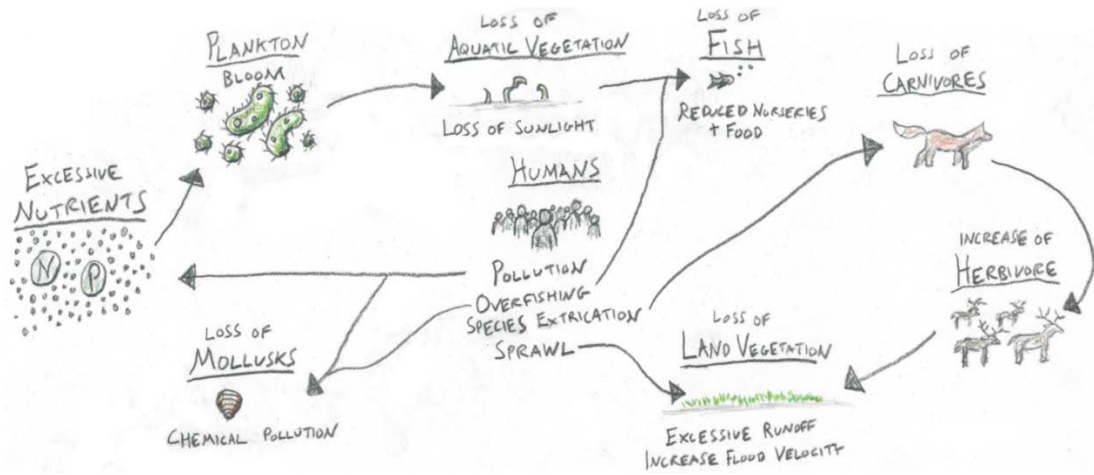 EXCESSIVE
NUTRIENTS
N P
PLANKTON
BLOOM
LOSS OF
AQUATIC VEGETATION
LOSS OF SUNLIGHT
LOSS OF
FISH
REDUCED NURSERIES
+ FOOD
LOSS OF
CARNIVORES
INCREASE OF
HERBIVORE
HUMANS
POLLUTION
OVERFISHING
SPECIES EXTRICATION
SPRAWL
LOSS OF
MOLLUSKS
CHEMICAL POLLUTION
LOSS OF
LAND VEGETATION
EXCESSIVE RUNOFF
INCREASE FLOOD VELOCITY